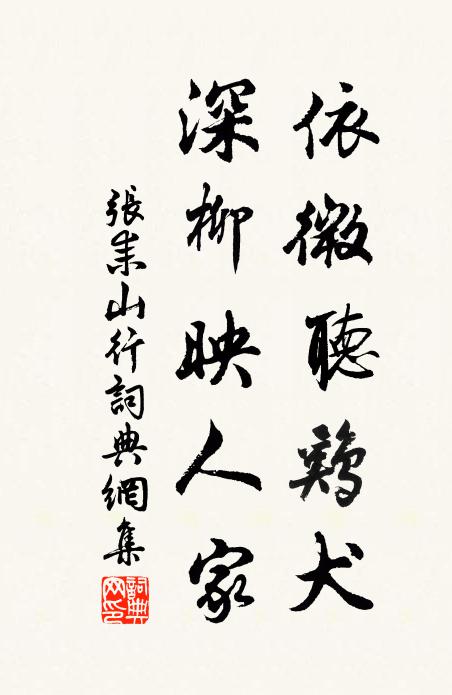 依微聽鷄犬
深柳映人家
張耒山行詞典網集
詞典網印